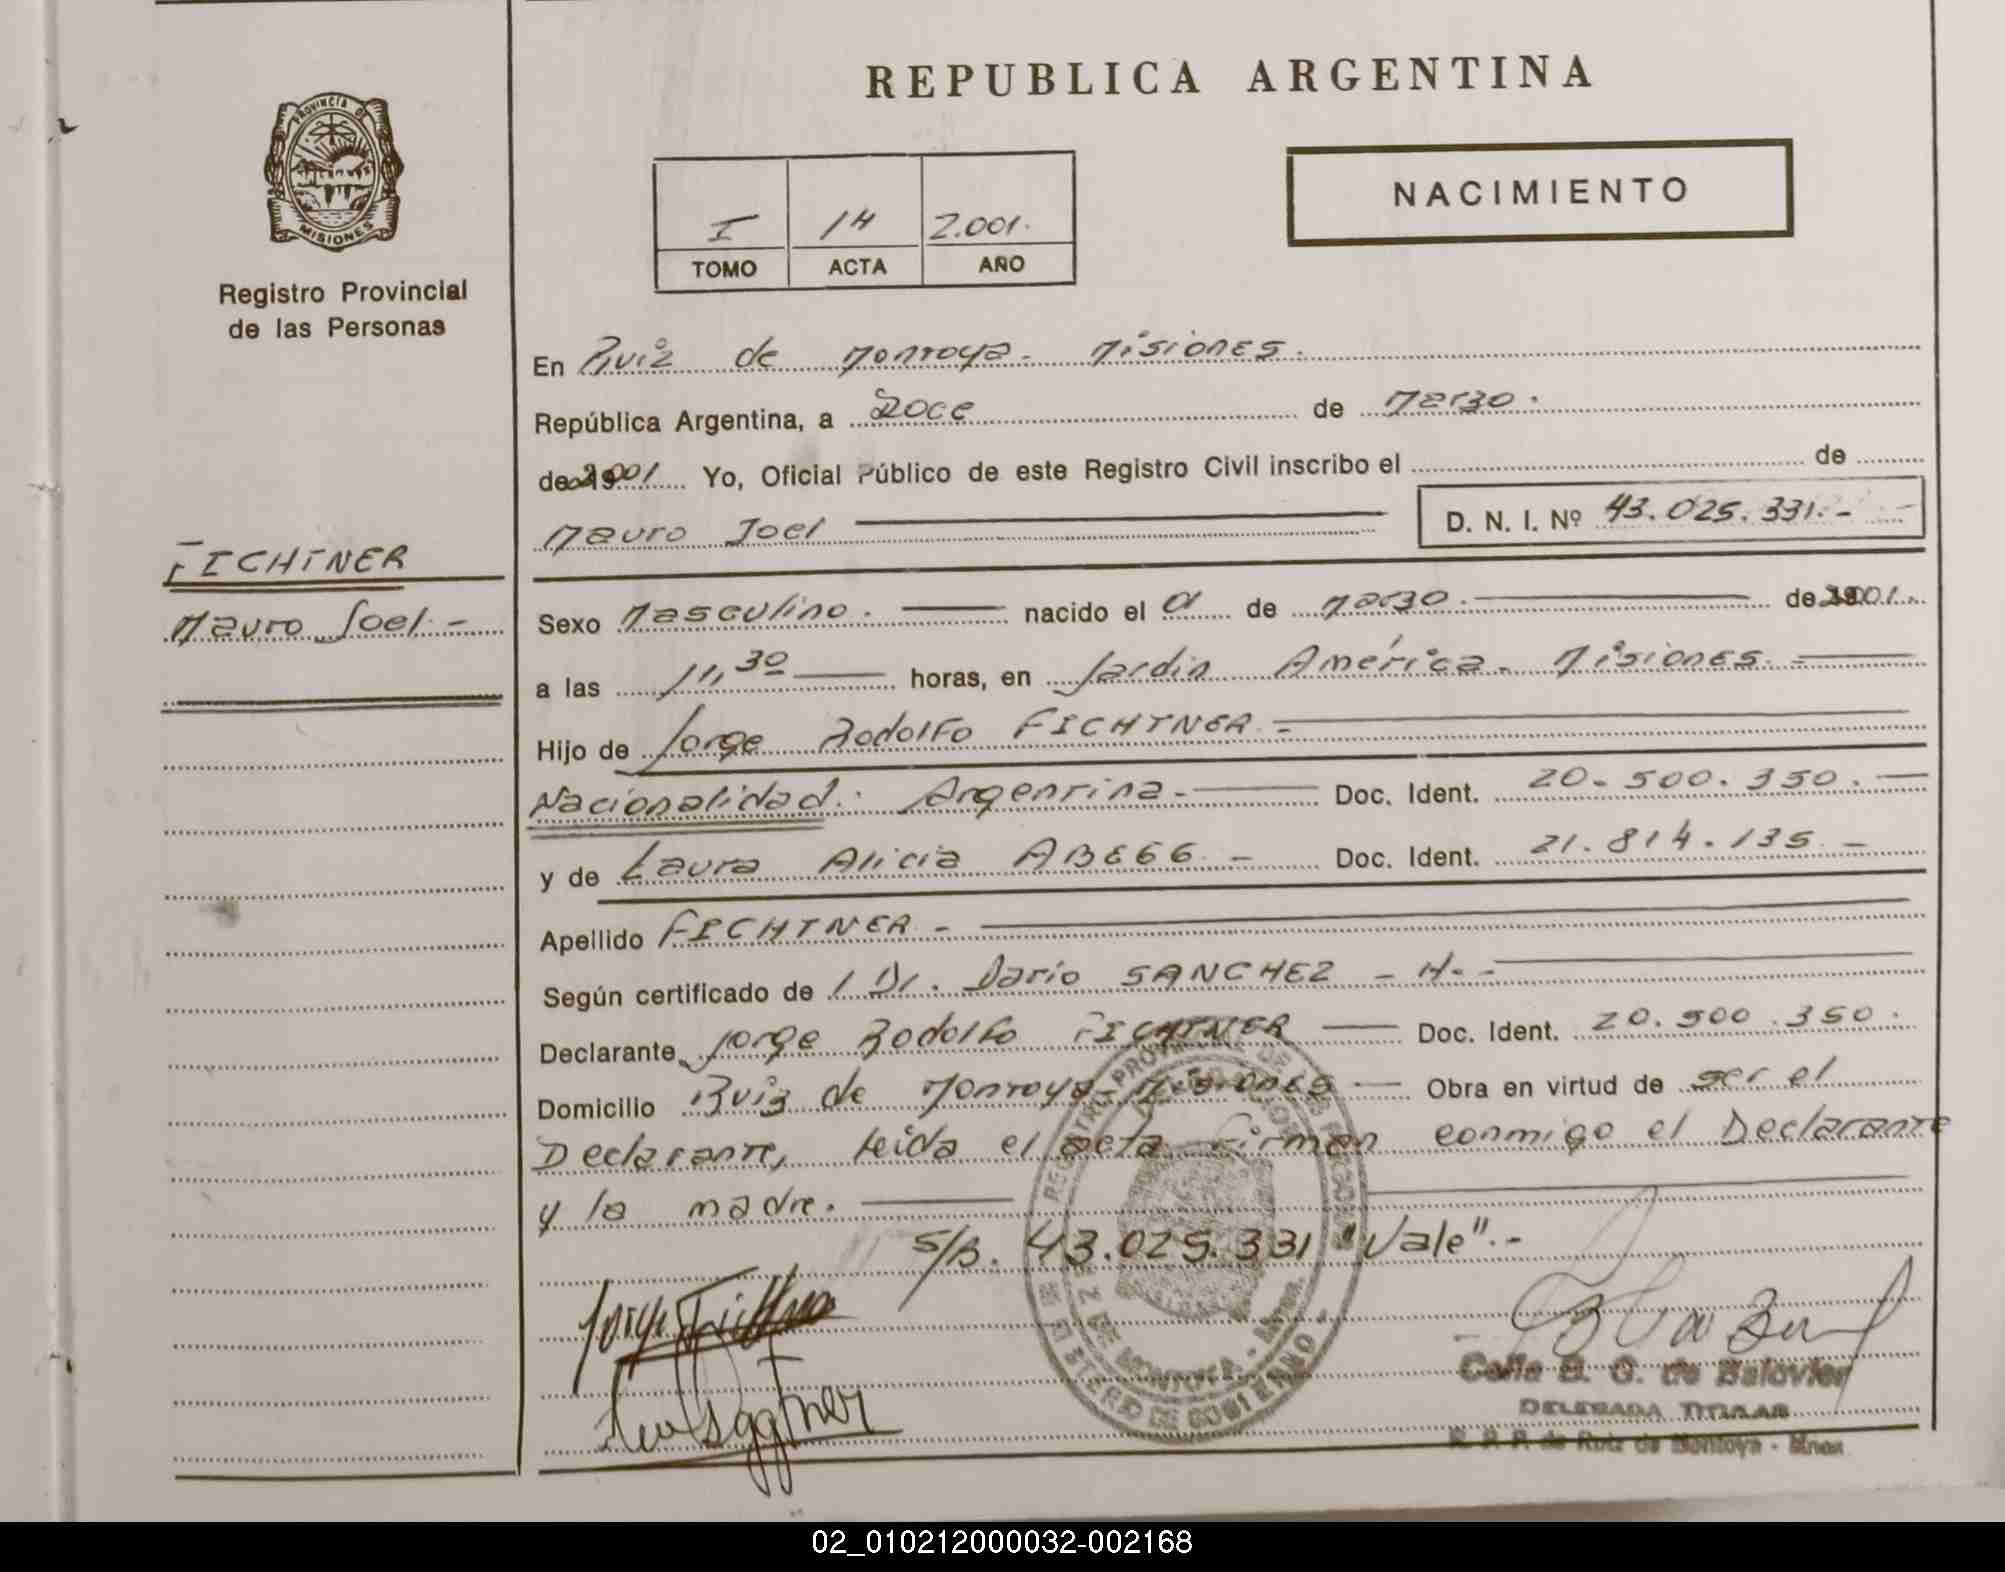 REPUBLICA ARGENTINA
PROVINCIA DE
MISIONES
Registro Provincial
de las Personas
NACIMIENTO
I 14 2.001.
TOMO ACTA AÑO
En Ruiz de Montoya - Misiones.
República Argentina, a Doce de Marzo.
de 2001 Yo, Oficial Público de este Registro Civil inscribo el de
Mauro Joel D. N. I. Nº 43.025.331.-
FICHTNER
Mauro Joel.-
Sexo Masculino. nacido el 01 de Marzo. de 2001.
a las 11,30 horas, en Jardin América - Misiones.-
Hijo de Jorge Rodolfo FICHTNER.-
Nacionalidad: Argentina.- Doc. Ident. 20.500.350.
y de Laura Alicia Doc. Ident. 21.814.135.-
Apellido FICHTNER.-
Según certificado de 1 Dr. Dario SANCHEZ - H.-
Declarante Jorge Rodolfo FICHTNER Doc. Ident. 20.500.350.
Domicilio Ruiz de Montoya - Misiones Obra en virtud de ser el
Declarante, leida el acta firman conmigo el Declarante
y la madre.
S/B. 43.025.331 "Vale".-
REGISTRO PROVINCIAL DE LAS PERSONAS
RUIZ DE MONTOYA - Mnes.
MINISTERIO DE GOBIERNO
Celia B. G. de
DELEGADA TITULAR
R. P. P. de Ruiz de Montoya - Mnes
02_010212000032-002168